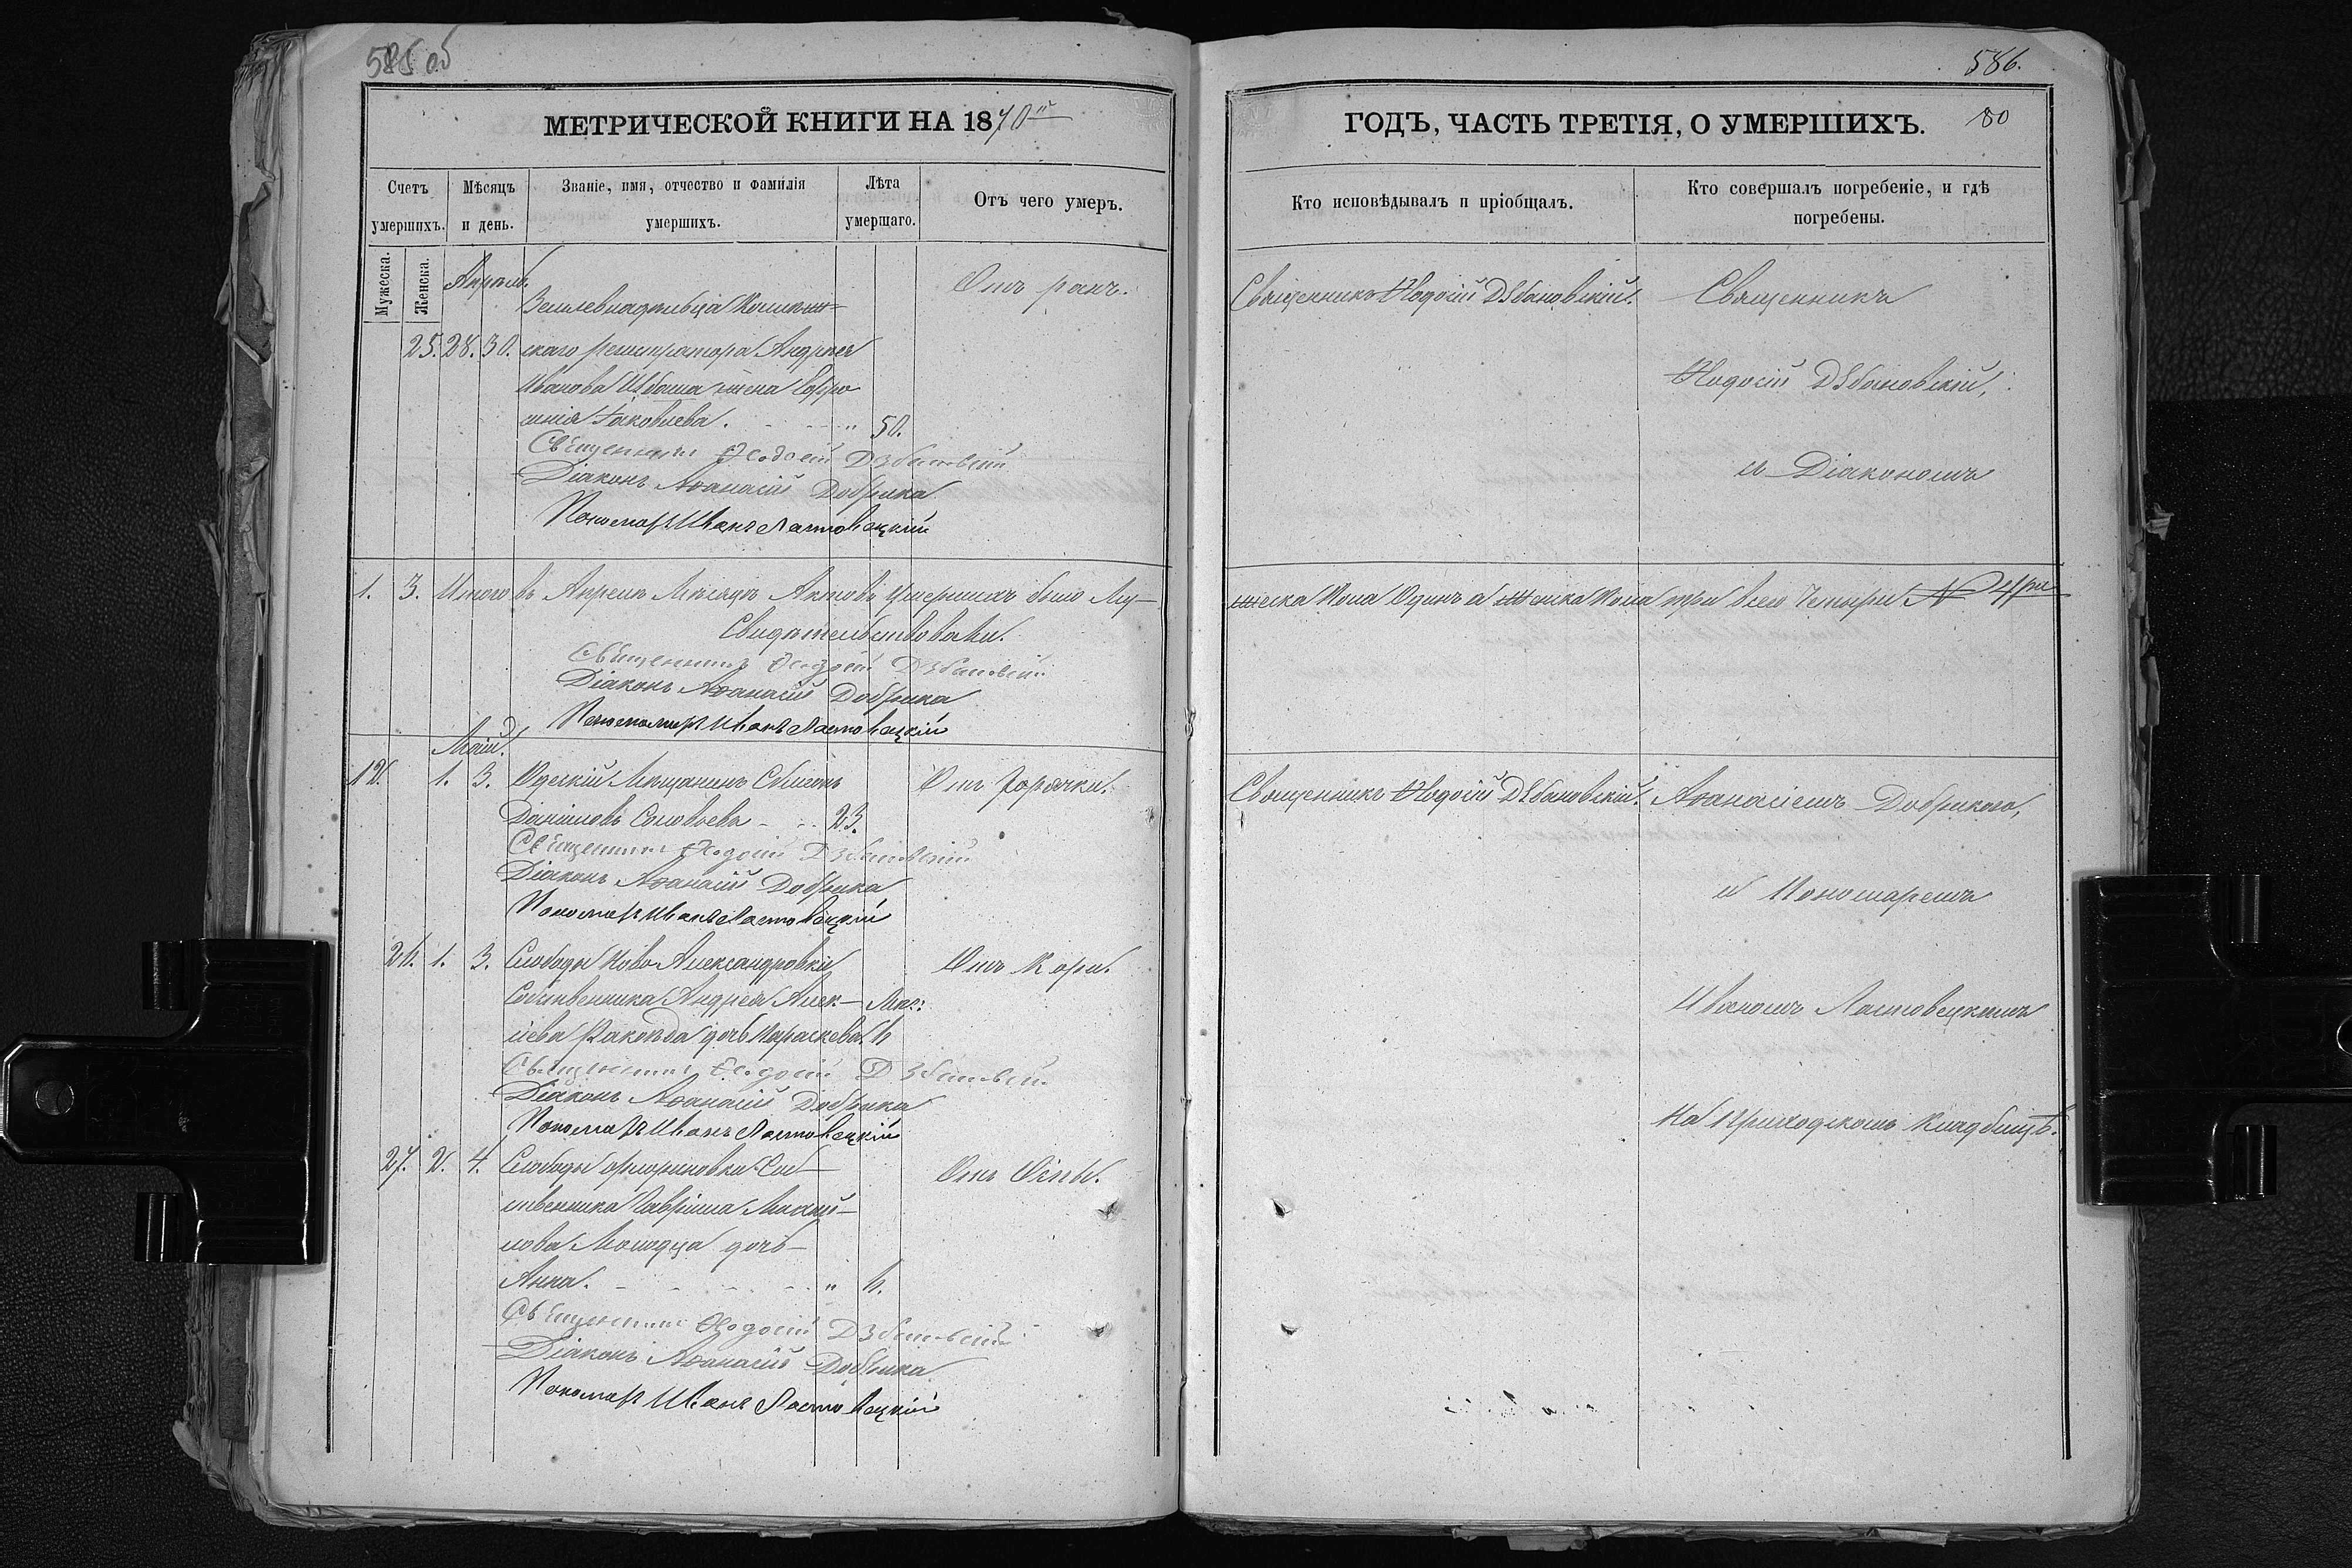 585 об
МЕТРИЧЕСКОЙ КНИГИ НА 1870й
Счетъ умершихъ.
Мѣсяцъ и день.
Званіе, имя, отчество и фамилія умершихъ.
Лѣта умершаго.
Отъ чего умеръ.
Мужеска.
Женска.
Апрель.
25. 28. 30.
Землевладѣльца Коллеж-
скаго регистратора Андрея
Иванова жена Евфро
синія Яковлева. 50.
Отъ ранъ.
Священникъ Ѳеодосій Дзбановскій
Діаконъ Аѳанасій Добрика
Пономарь Иванъ Ластовецкій
1. 3. Итого въ Апрелѣ Мѣсяцѣ Актовъ Умершихъ было Му-
Свидѣтельствовали.
Священникъ Ѳеодосій Дзбановскій
Діаконъ Аѳанасій Добрика
Пономарь Иванъ Ластовецкій
Май.
12. 1. 3. Одескій Мѣщанинъ Симеонъ
Даніиловъ Соловьевъ 23.
Отъ Горячки.
Священникъ Ѳеодосій Дзбановскій
Діаконъ Аѳанасій Добрика
Пономарь Иванъ Ластовецкій
26. 1. 3. Слободы Ново Александровки
Собственника Андрея Алек- Мѣс:
сіева дочь Параскева. 6
Отъ Кори.
Священникъ Ѳеодосій Дзбановскій
Діаконъ Аѳанасій Добрика
Пономарь Иванъ Ластовецкій
27. 2. 4. Слободы Соб-
ственника Гавріила Макси-
мова Молодца дочь
Анна. 6.
Отъ Оспы.
Священникъ Ѳеодосій Дзбановскій
Діаконъ Аѳанасій Добрика
Пономарь Иванъ Ластовецкій
586.
ГОДЪ, ЧАСТЬ ТРЕТІЯ, О УМЕРШИХЪ. 80
Кто исповѣдывалъ и пріобщалъ.
Кто совершалъ погребеніе, и гдѣ погребены.
Священникъ Ѳеодосій Дзбановскій.
Священникъ
Ѳеодосій Дзбановскій,
съ Діакономъ
жеска Пола Одинъ а Женска Пола три всего Четыри № 4ри
Священникъ Ѳеодосій Дзбановскій.
Аѳанасіемъ Добрикою,
и Пономаремъ
Иваномъ Ластовецкимъ
На Приходскомъ Кладбищѣ.